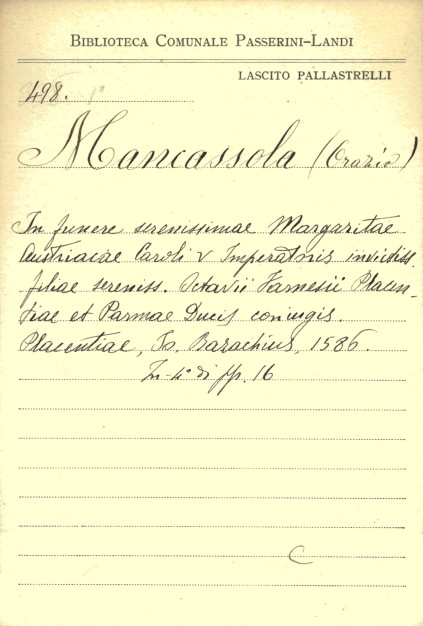 BIBLIOTECA COMUNALE PASSERINI-LANDI
LASCITO PALLASTRELLI
498. 1°
Mancassola (Orazio)
In funere serenissimae Margaritae
Austriacae Caroli V Imperatoris invictiss.
filiae sereniss. Octavii Farnesii Placen-
tiae et Parmae Ducis coniugis.
Placentiae, Io. Bazachius, 1586.
In-4° di pp. 16
C